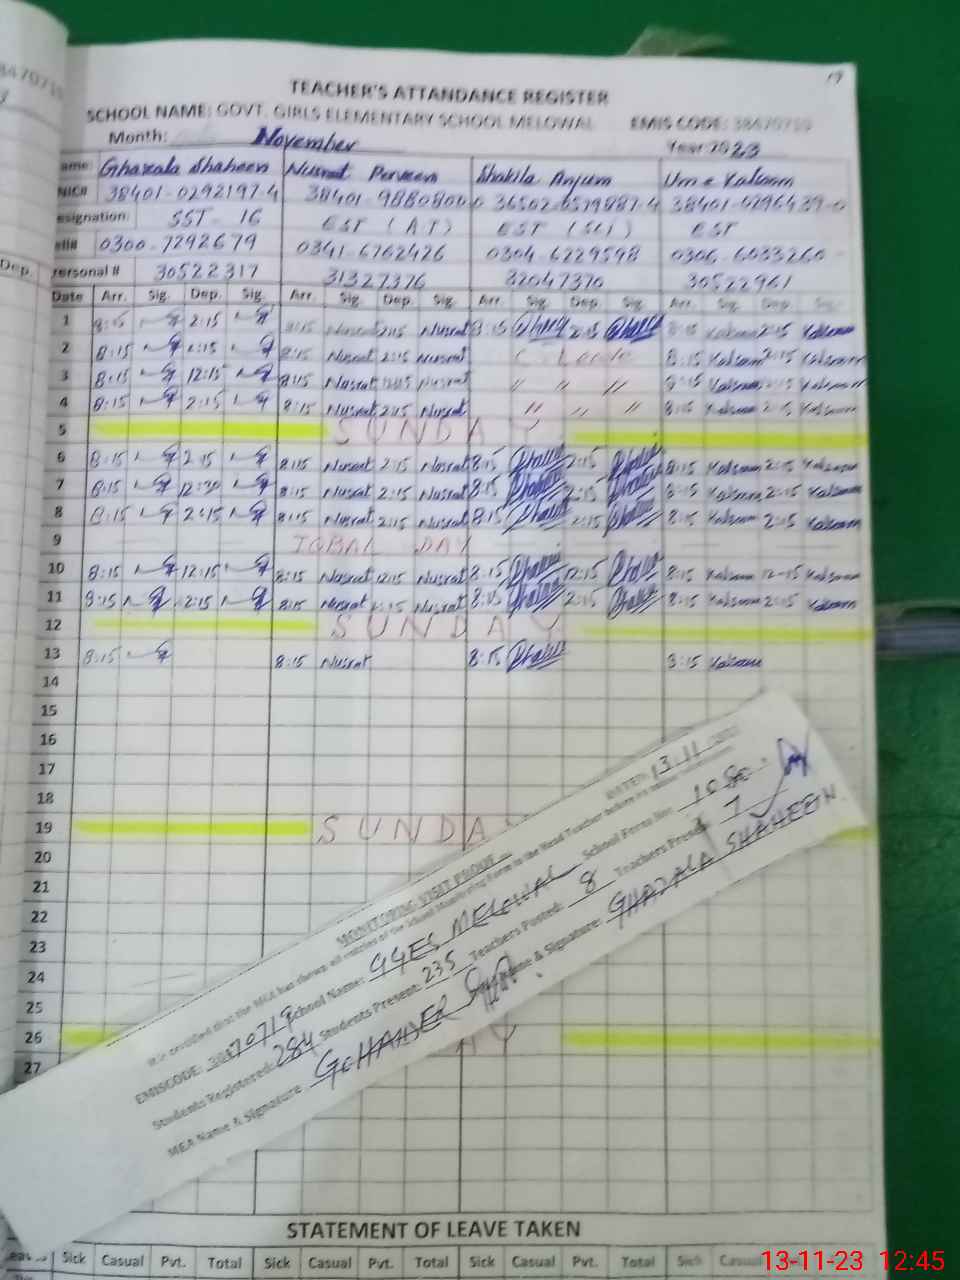 19
TEACHER'S ATTANDANCE REGISTER
SCHOOL NAME: GOVT. GIRLS ELEMENTARY SCHOOL MELOWAL EMIS CODE: 38470719
Month: November Year 2023
ame: Ghazala Shaheen Nusrat Perveen Shakila Anjum Um e Kalsoom
NIC# 38401-0292197-4 38401-9880800-0 38401-0296439-0
esignation: SST-16 EST (AT) EST (SCI) EST
ell# 0300-7292679 0341-6762426 0304-6229598 0306-6033260
ersonal # 30522317 31327376 32047370 30522961
Dep. Date Arr. Sig. Dep. Sig. Arr. Sig. Dep. Sig. Arr. Sig. Dep. Sig. Arr. Sig. Dep. Sig.
1 8:15 2:15 8:15 Nusrat 2:15 Nusrat 8:15 2:15 8:15 Kalsoom 2:15 Kalsoom
2 8:15 2:15 8:15 Nusrat 2:15 Nusrat C. Leave 8:15 Kalsoom 2:15 Kalsoom
3 8:15 12:15 8:15 Nusrat 12:15 Nusrat " " " 8:15 Kalsoom Kalsoom
4 8:15 2:15 8:15 Nusrat 2:15 Nusrat " " " 8:15 Kalsoom 2:15 Kalsoom
5 SUNDAY
6 8:15 2:15 8:15 Nusrat 2:15 Nusrat 8:15 2:15 8:15 Kalsoom 2:15 Kalsoom
7 8:15 12:30 8:15 Nusrat 2:15 Nusrat 8:15 2:15 8:15 Kalsoom 2:15 Kalsoom
8 8:15 2:15 8:15 Nusrat 2:15 Nusrat 8:15 2:15 8:15 Kalsoom 2:15 Kalsoom
9 IQBAL DAY
10 8:15 12:15 8:15 Nusrat 12:15 Nusrat 8:15 12:15 8:15 Kalsoom 12-15 Kalsoom
11 8:15 2:15 8:15 Nusrat 2:15 Nusrat 8:15 2:15 8:15 Kalsoom 2:15 Kalsoom
12 SUNDAY
13 8:15 8:15 Nusrat 8:15 8:15 Kalsoom
14
15
16
17
18
19 SUNDAY
20
21
22
23
24
25
26
27
DATE: 13.11.2023
MONITORING VISIT PROOF
It is certified that the MEA has shown all entries of the School Monitoring Form to the Head Teacher before
EMISCODE: 38470719 School Name: GGES MELOWAL School Form No:
Students Registered: 284 Students Present: 235 Teachers Posted: 8 Teachers Present 7
MEA Name & Signature: Name & Signature: GHAZALA SHAHEEN
STATEMENT OF LEAVE TAKEN
Sick Casual Pvt. Total Sick Casual Pvt. Total Sick Casual Pvt. Total Sick Casual
13-11-23 12:45